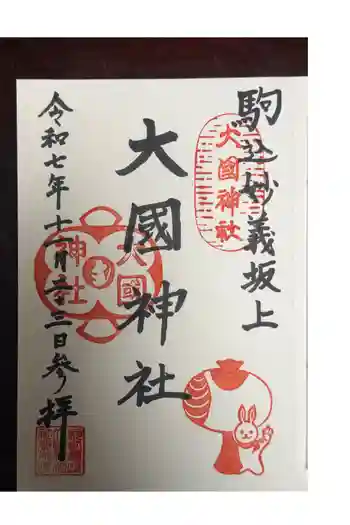 駒込妙義坂上
大國神社
大國神社
大國神社
令和七年十一月二十三日参拝